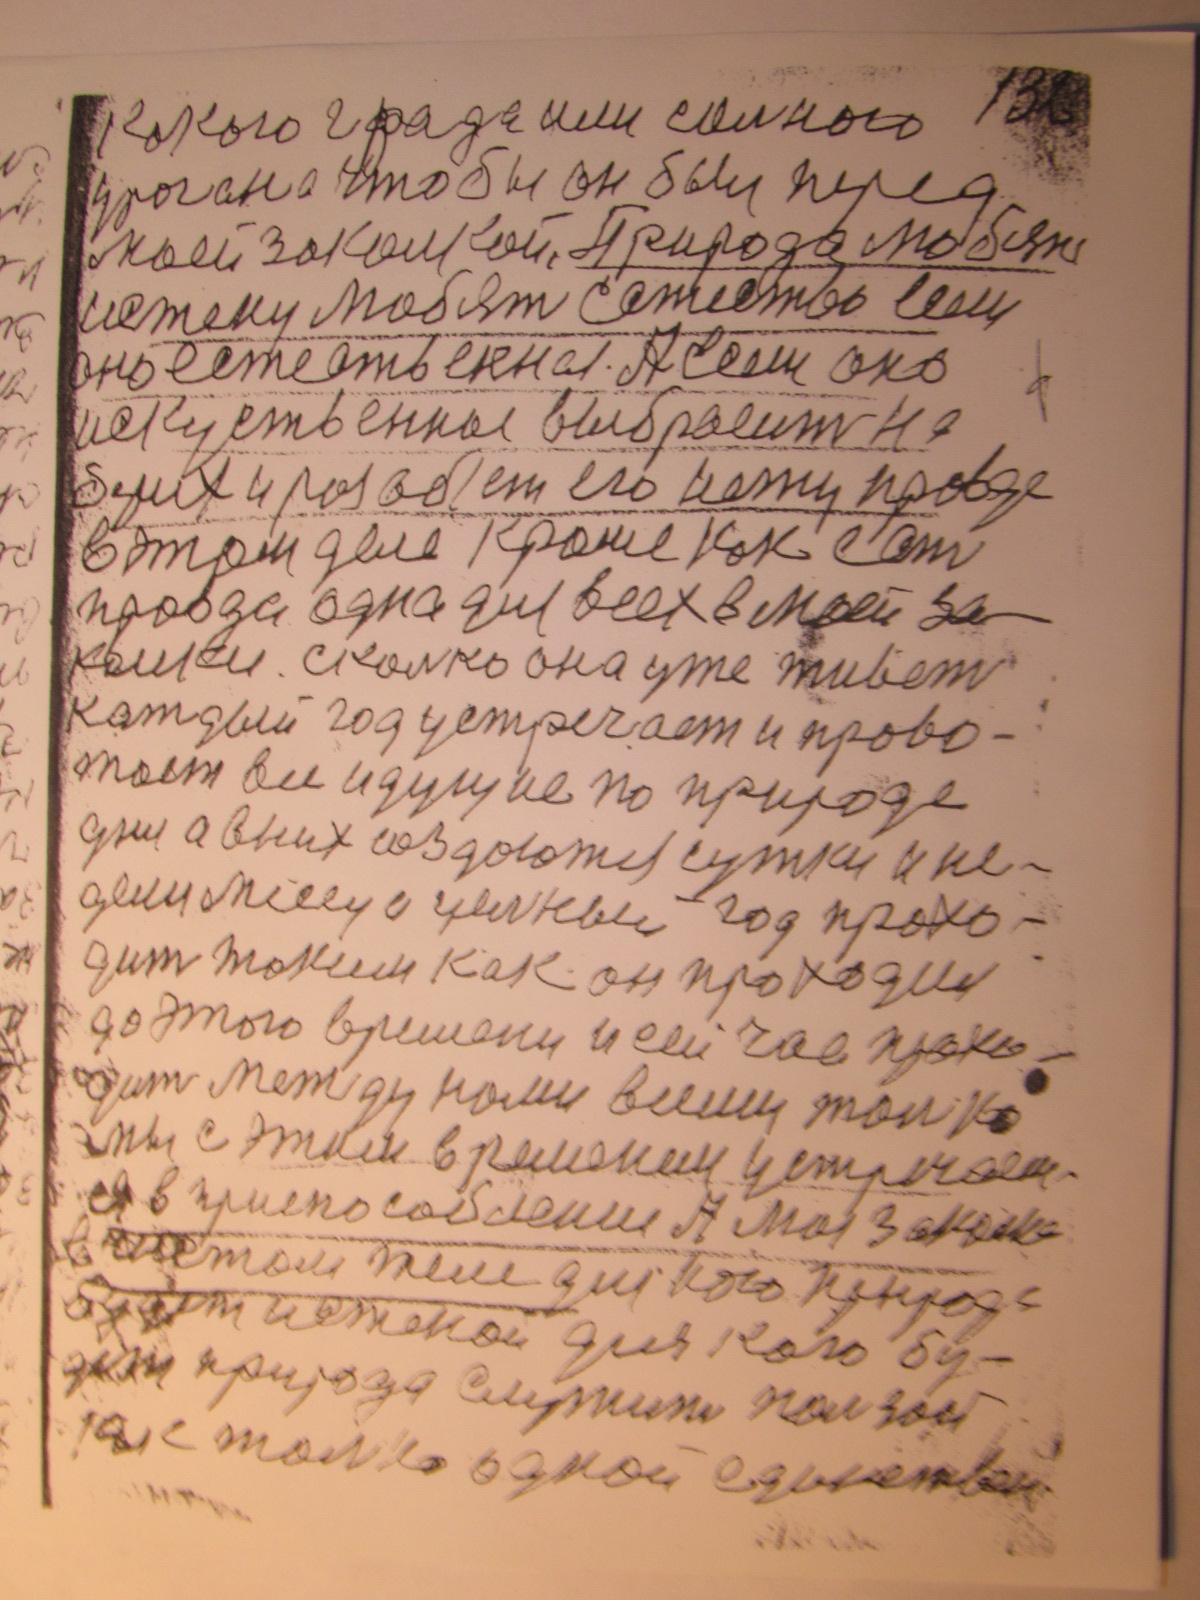 какого града или силного
урогана чтобы он был перед
моей закалкой. Природа любят
истену любят естество если
оно естественная. А если оно
искуственная выбрасит на
их и его нету правде
в этом деле кроме как есть
правда одна для всех в моей за-
калки. сколко она уже живет
каждый год устречает и прово-
жает все идущие по природе
дни а в них создаются сутки и не-
дели месецы целный год прохо-
дит таким как он проходил
до этого времени и сей час прохо-
дит между нами всеми толко
мы с этим временем устречаем-
ся в приспособлении А моя закалка
в теле для кого природа
будет истеной для кого бу-
дет природа служить ползой
как толко одной единствен-